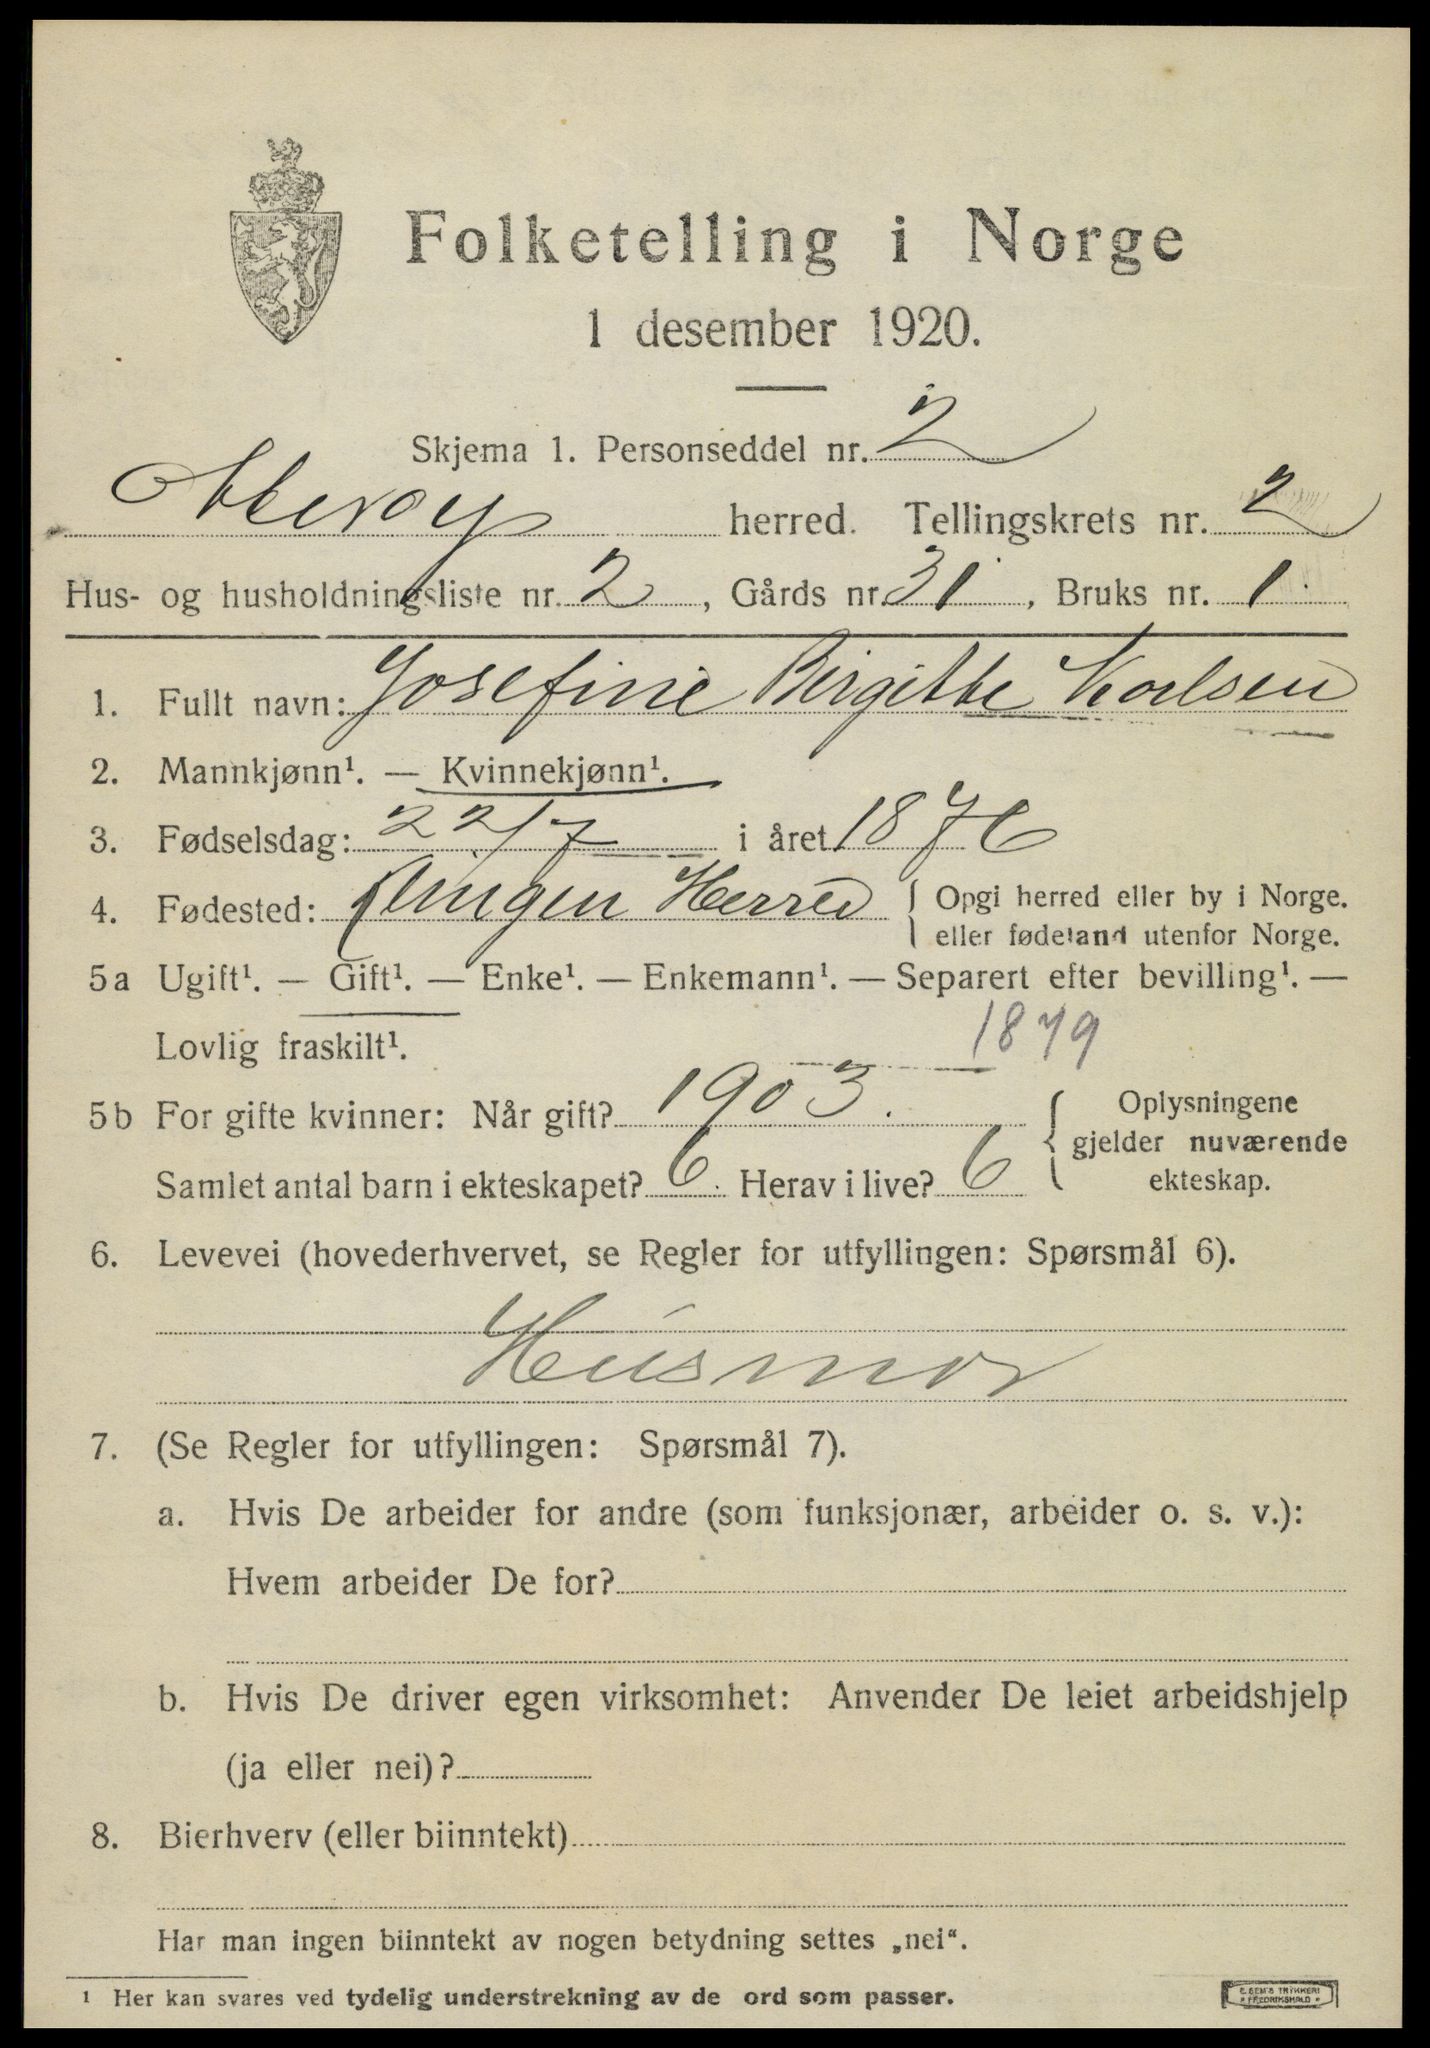 Folketelling i Norge
1 desember 1920.
Skjema 1. Personseddel nr. 2
herred. Tellingskrets nr. 2
Hus- og husholdningsliste nr. 2, Gårds nr. 31, Bruks nr. 1
1. Fullt navn: Josefine Birgitte Karlsen
2. Mannkjønn¹. — Kvinnekjønn¹.
3. Fødselsdag: 22/7 i året 1876
4. Fødested: Herred { Opgi herred eller by i Norge.
eller fødeland utenfor Norge.
5a Ugift¹. — Gift¹. — Enke¹. — Enkemann¹. — Separert efter bevilling¹. —
Lovlig fraskilt¹. 1879
5b For gifte kvinner: Når gift? 1903.
Samlet antal barn i ekteskapet? 6. Herav i live? 6
{ Oplysningene
gjelder nuværende
ekteskap.
6. Levevei (hovederhvervet, se Regler for utfyllingen: Spørsmål 6).
Husmor
7. (Se Regler for utfyllingen: Spørsmål 7).
a. Hvis De arbeider for andre (som funksjonær, arbeider o. s. v.):
Hvem arbeider De for?
b. Hvis De driver egen virksomhet: Anvender De leiet arbeidshjelp
(ja eller nei)?
8. Bierhverv (eller biinntekt)
Har man ingen biinntekt av nogen betydning settes „nei“.
¹ Her kan svares ved tydelig understrekning av de ord som passer.
E. SEM'S TRYKKERI
FREDRIKSHALD